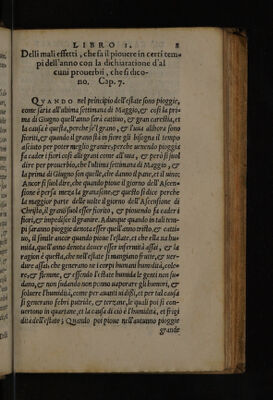 LIBRO I. 8
Delli mali effetti, che fa il piouere in certi tem-
pi dell'anno con la dichiaratione d'al
cuni prouerbii, che si dico-
no. Cap. 7.
QVANDO nel principio dell'estate sono pioggie,
come saria all'ultima settimana di Maggio, & così la pri-
ma di Giugno quell'anno sarà cattiuo, & gran carestia, et
la causa è questa, perche se'l grano, & l'uua alihora sono
fioriti, & quando il grano stà in fiore gli bisogna il tempo
asciuto per poter meglio granire; perche uenendo pioggia
fa cadere i fiori cosi alli grani come all'uua, & però si suol
dire per prouerbio, che l'ultima settimana di Maggio, & la
prima di Giugno son quelle, che danno il pane, et il uino;
Ancor si suol dire, che quando pioue il giorno dell'Ascen-
sione si perda mezza la granasone; et questo si dice perche
la maggior parte delle uolte il giorno dell'Ascensione di
Christo, il grano suol esser fiorito, & piouendo fa cadere i
fiori, & impedisce il granire. Adunque quando in tali tem-
pi saranno pioggie denota esser quell'anno tristo, & catti-
uo, il simile ancor quando pioue l'estate, et che ella na hu-
mida, quell'anno denota douer esser infermità assai, & la
ragion è questa, che nell'estate si mangia frutte, & uer-
dure assai che generano ne i corpi humani humidità, cole-
re, & flemme, & essendo l'estate humida le genti non su-
dano, & non sudando non ponno euaporare gli humori, &
soluere l'humidità, come per auanti ui dissi, et per tal causa
si generano febri putride, & terzane, le quali poi si con-
uertono in quartane, et la causa di ciò è l'humidità, et frigi
dità dell'estate; Quando poi pioue nell'autunno pioggie
grande